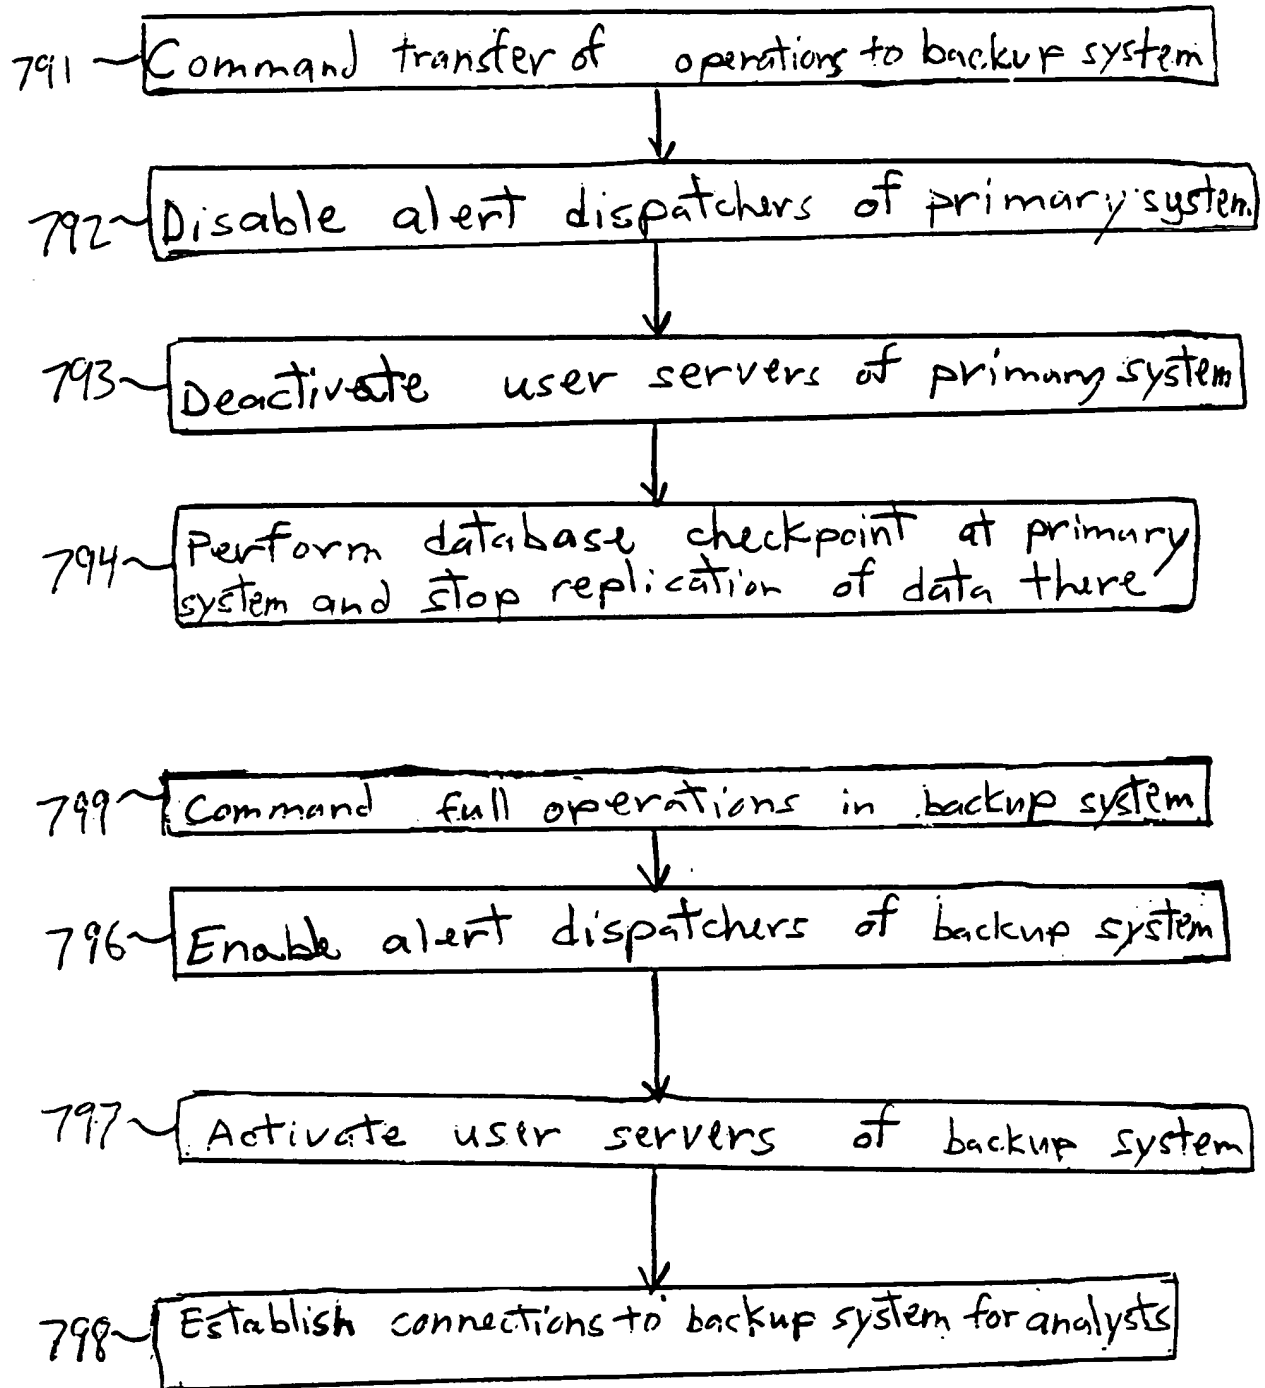 791 Command transfer of operations to backup system
792 Disable alert dispatchers of primary system.
793 Deactivate user servers of primary system
794 Perform database checkpoint at primary
system and stop replication of data there
799 Command full operations in backup system
796 Enable alert dispatchers of backup system
797 Activate user servers of backup system
798 Establish connections to backup system for analysts